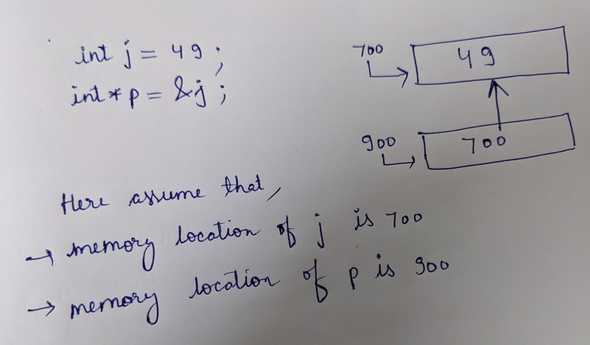 int j = 49;
int* p = &j;
700
49
900
700
Here assume that,
→ memory location of j is 700
→ memory location of p is 900